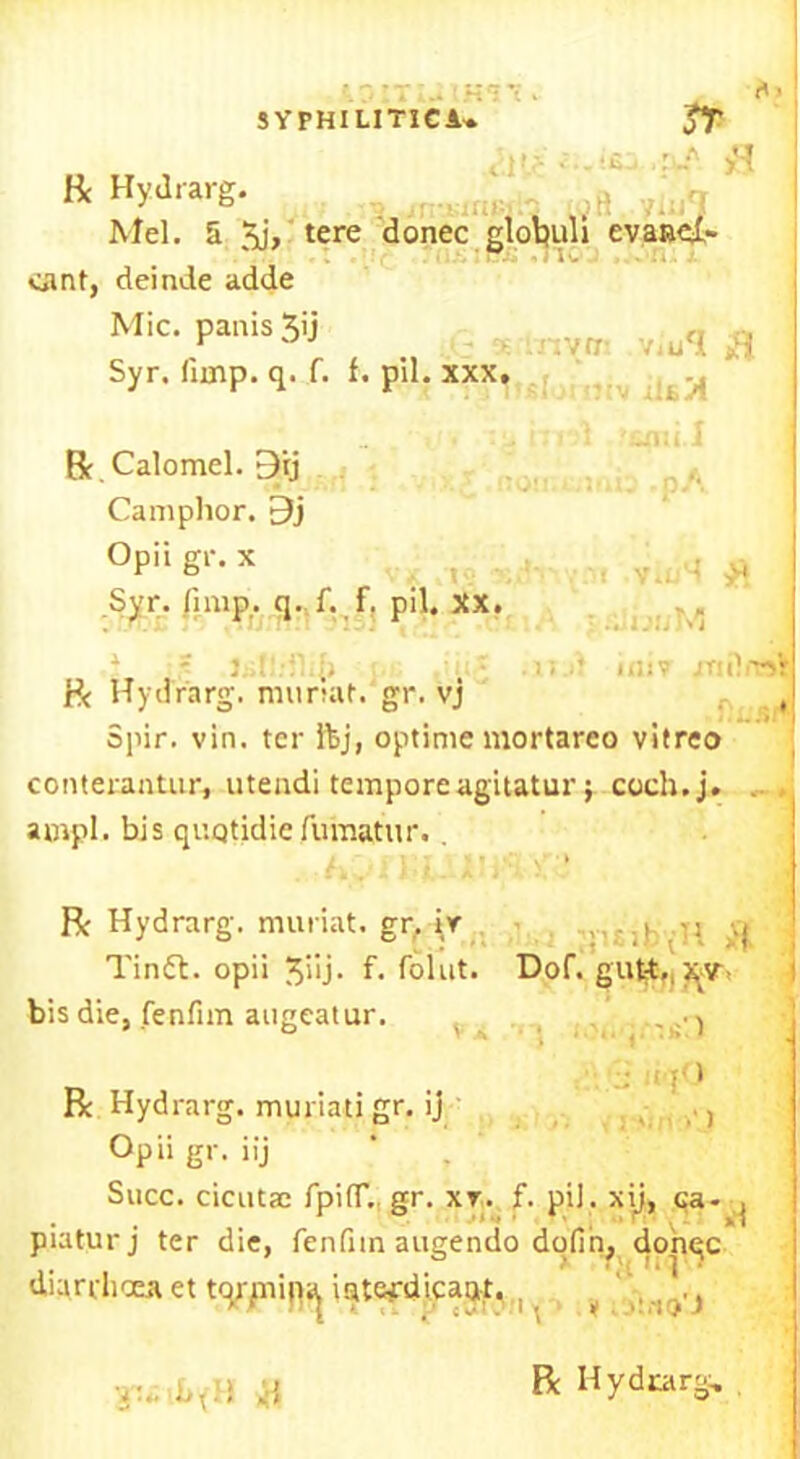 SYPHILITICA.
℞ Hydrarg.
Mel. ā ʒj, tere donec globuli evaneſ-
cant, deinde adde
Mic. panis ʒij
Syr. ſimp. q. ſ. f. pil. xxx.
℞ Calomel. ℈ij
Camphor. ℈j
Opii gr. x
Syr. ſimp. q. ſ. f. pil. xx.
℞ Hydrarg. muriat. gr. vj
Spir. vin. ter ℔j, optime mortareo vitreo
conterantur, utendi tempore agitatur; coch. j.
ampl. bis quotidie ſumatur.
℞ Hydrarg. muriat. gr. iv
Tinct. opii ʒiij. f. ſolut. Doſ. gutt. xv
bis die, ſenſim augeatur.
℞ Hydrarg. muriati gr. ij
Opii gr. iij
Succ. cicutæ ſpiſſ. gr. xv. f. pil. xij, ca-
piatur j ter die, ſenſim augendo doſin, donec
diarrhœa et tormina interdicant.
℞ Hydrarg.